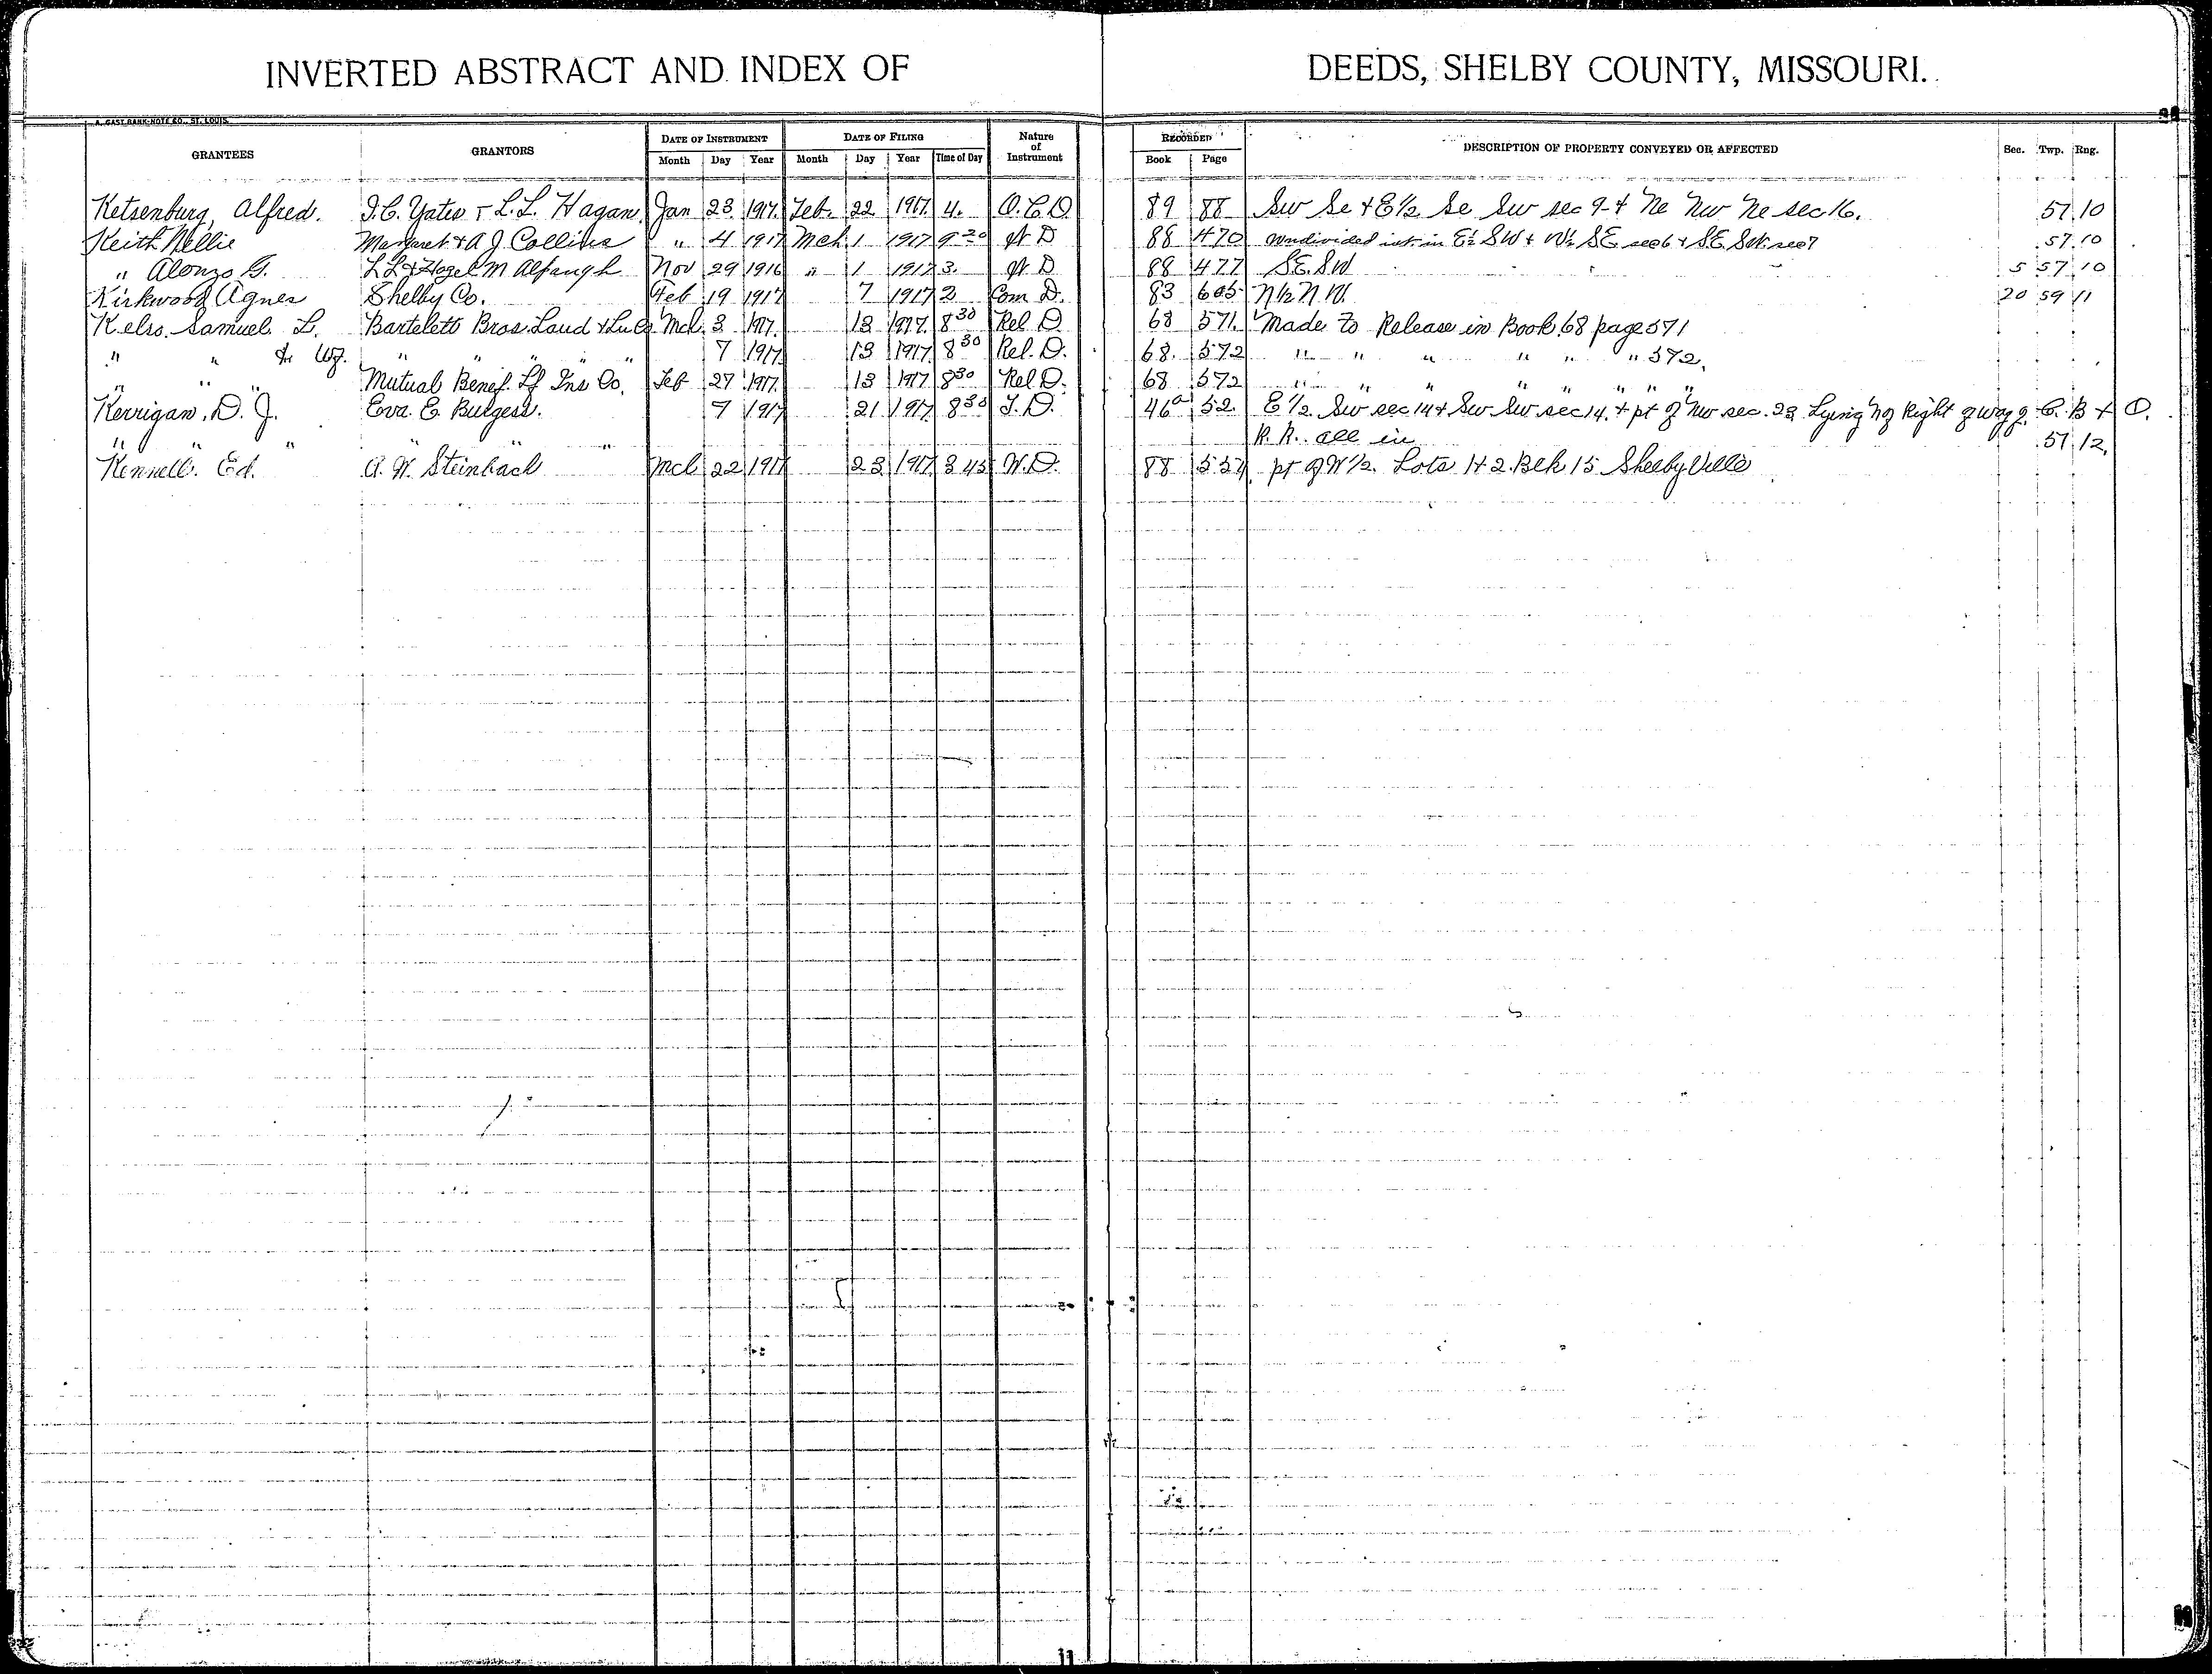 INVERTED ABSTRACT AND INDEX OF DEEDS, SHELBY COUNTY, MISSOURI.
A. GAST BANK-NOTE CO., ST. LOUIS.
GRANTEES GRANTORS DATE OF INSTRUMENT DATE OF FILING Nature of Instrument RECORDED DESCRIPTION OF PROPERTY CONVEYED OR AFFECTED Sec. Twp. Rng.
Month Day Year Month Day Year Time of Day Book Page
Ketsenburg, Alfred. J.C. Yates + L.L. Hagan Jan 23 1917. Feb. 22 1917. 4. Q.C.D. 89 88 Sw Se + E 1/2 Se Sw sec 9 + Ne Nw Ne sec 16. 57 10
Keith Nellie Margaret + A J Collins " 4 1917 Mch 1 1917 9 30 W D 88 470 undivided int in E½ SW + W½ SE sec 6 + SE SW sec 7 57 10
" Alonzo G. L L + Hazel M Alfaugh Nov 29 1916 " 1 1917 3. W D 88 477 SE. SW 5 57 10
Kirkwood Agnes Shelby Co. Feb 19 1917 7 1917 2 Com D. 83 605 N 1/2 N W. 20 59 11
Kelso. Samuel L. Bartelett Bros. Land + Ln Co Mch. 3 1917. 13 1917. 8 30 Rel D. 68 571. Made To Release in Book 68 page 571
" " & Wf. " " " " " 7 1917. 13 1917 8 30 Rel. D. 68. 572 " " " " " " 572.
" " " Mutual Benef. Lf Ins Co. Feb 27 1917. 13 1917 8 30 Rel D. 68 572 " " " " " " "
Kerrigan, D. J. Eva E. Burgess. 7 1917 21 1917. 8 30 T. D. 46a 52 E 1/2 Sw sec 14 + Sw Sw sec 14. + pt of Nw sec. 23 Lying N of Right of way of C. B + Q.
" " " " " R. R. all in 57 12.
Kennell. Ed. A. W. Steinbach Mch 22 1917 23 1917 3 45 W. D. 88 557. pt of W 1/2. Lots 1 + 2. Blk 15 ShelbyVille